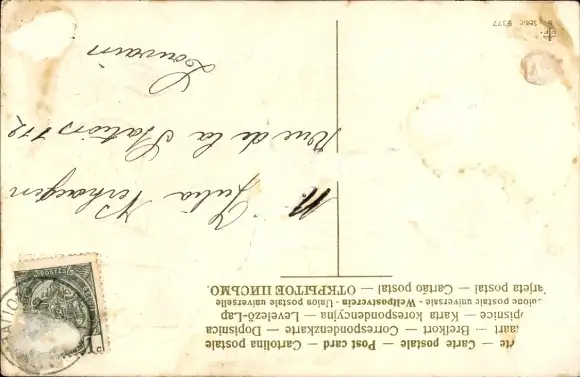 rte — Carte postale — Post card — Cartolina postale
aart — Brefkort — Correspondenzkarte — Dopisnica
opisnice — Karta korespondencyjna — Levelező-Lap
Union postale universelle - Weltpostverein - Union postale universelle
arjeta postal — Cartão postal — ОТКРЫТОЕ ПИСЬМО.
M. Julia Verhaegen
Rue de la Station 112
Louvain
Serie 9377